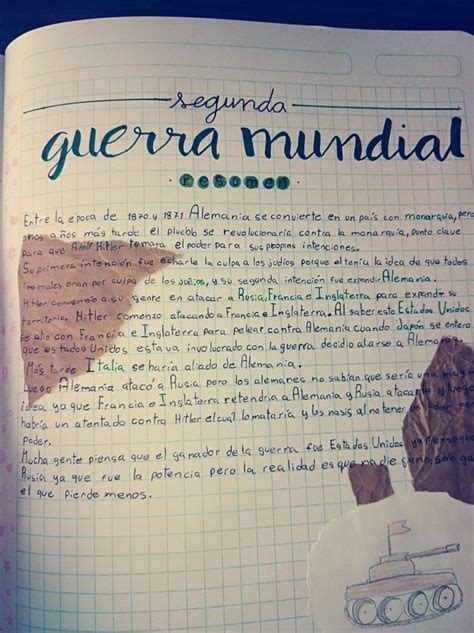 segunda
guerra mundial
· resumen ·
Entre la epoca de 1870 y 1871 Alemania se convierte en un país con monarquía, pero
unos años más tarde el pueblo se revolucionaría contra la monarquía, punto clave
para que Adolf Hitler tomara el poder para sus propias intenciones.
Su primera intención fue echarle la culpa a los judios porque el tenía la idea de que todos
los males eran por culpa de los judios, y su segunda intención fue expandir Alemania.
Hitler convencio a su gente en atacar a Rusia, Francia e Inglaterra para expandir su
territorio. Hitler comenzo atacando a Francia e Inglaterra. Al saber esto Estados Unidos
se alio con Francia e Inglaterra para pelear contra Alemania cuando Japon se entero
que estados Unidos estava involucrado con la guerra decidio alarse a Alemania.
Más tarde Italia se haría aliado de Alemania.
Luego Alemania atacó a Rusia pero los alemanes no sabían que sería una mala
idea ya que Francia e Inglaterra retendría a Alemania y Rusia atacaría y luego
habría un atentado contra Hitler el cual lo mataría y los nasis al no tener
poder.
Mucha gente piensa que el ganador de la guerra fue Estados Unidos
Rusia ya que fue la potencia pero la realidad es que nadie gana solo
el que pierde menos.